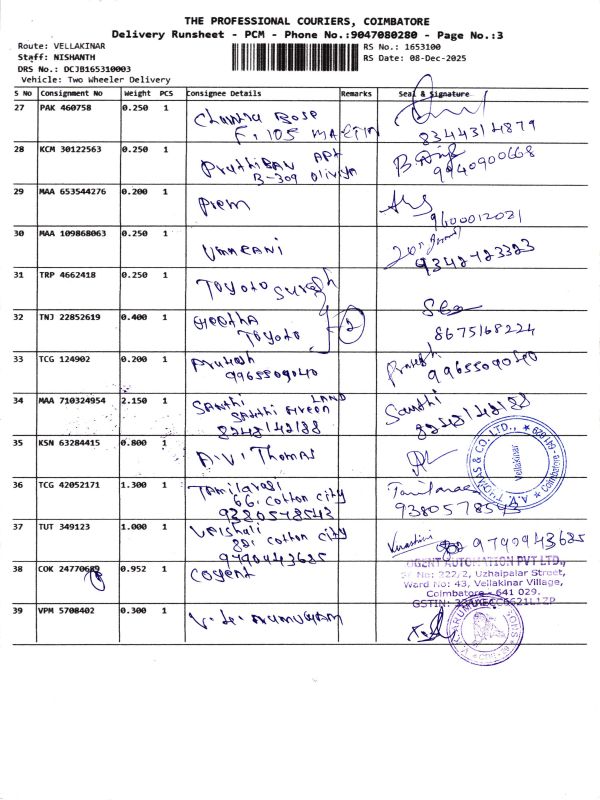 THE PROFESSIONAL COURIERS, COIMBATORE
Delivery Runsheet - PCM - Phone No.:9047080280 - Page No.:3
Route: VELLAKINAR
Staff: NISHANTH
DRS No.: DCJB165310003
Vehicle: Two Wheeler Delivery
RS No.: 1653100
RS Date: 08-Dec-2025
S No Consignment No Weight PCS Consignee Details Remarks Seal & Signature
27 PAK 460758 0.250 1 Chandra Bose
F. 105 MARTIN 8344314879
28 KCM 30122563 0.250 1 Pruthiban APt
B-309 Oliviya 9940900668
29 MAA 653544276 0.200 1 Prem
9600012021
30 MAA 109868063 0.250 1 Ummerani
31 TRP 4662418 0.250 1 Toyoto Suresh
32 TNJ 22852619 0.400 1 Geetha
Toyoto 2 8675168224
33 TCG 124902 0.200 1 Prakash
9965509040 9965509040
34 MAA 710324954 2.150 1 Santhi LAND
Santhi Green Santhi
8248142188 8248142188
35 KSN 63284415 0.800 1 A.V. Thomas
A.V. THOMAS & CO. LTD., Vellakinar Coimbatore - 641 029
36 TCG 42052171 1.300 1 Tamilarasi
66, cotton city
9380578543 9380578543
37 TUT 349123 1.000 1 Vaishali
cotton city
9790943685 9790943685
38 COK 24770689 0.952 1 Cogent
OGENT AUTOMATION PVT LTD.,
SF No: 222/2, Uzhaipalar Street,
Ward No: 43, Vellakinar Village,
Coimbatore - 641 029.
GSTIN:
39 VPM 5708402 0.300 1 V. Arumugam
SONS